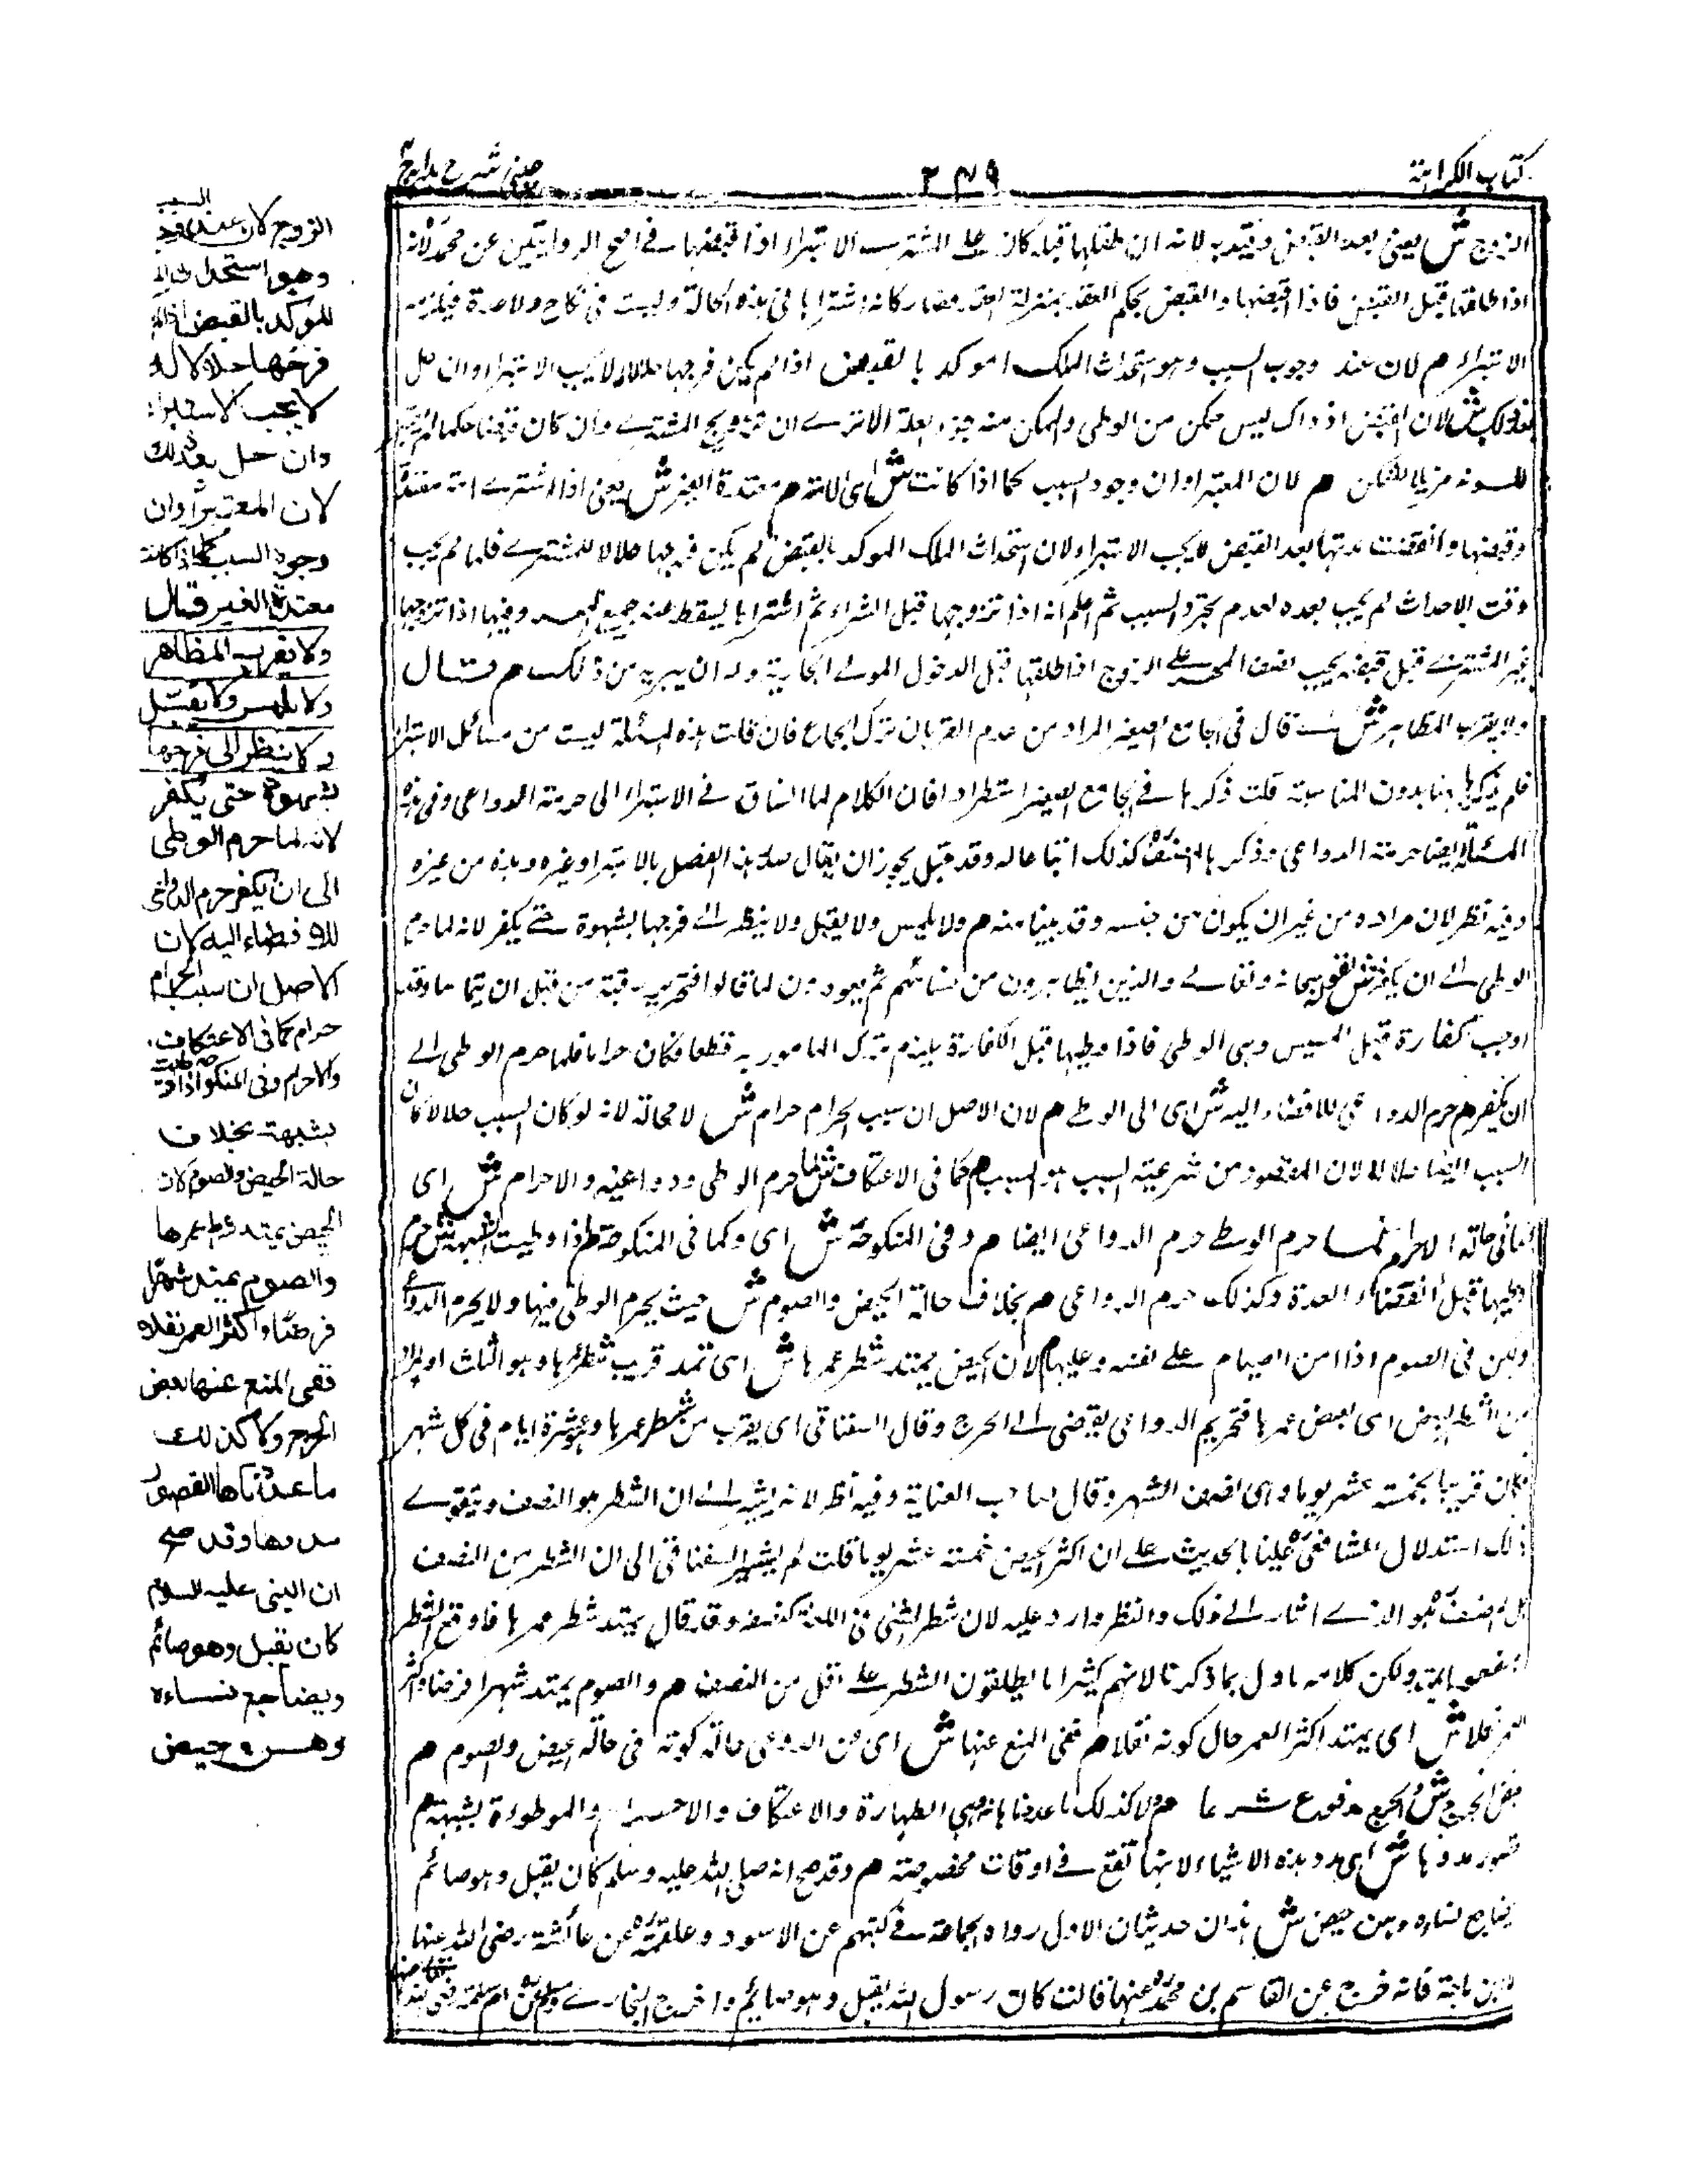 كتاب الكراهية
٢٧٩
عينى شرح هداية ج٤
الزوج ش يعنى بعد القبض وقيد به لانه ان طلقها قبله كان على المشترى الاستبراء اذا قبضها فى اصح الروايتين عن محمد لانه
اذا طلقها قبل القبض فاذا قبضها والقبض بحكم العقد بمنزلة العقد فصار كانه اشتراها فى هذه الحالة وليست فى نكاح ولا عدة فيلزمه
الاستبراء م لان عند وجوب السبب وهو استحداث الملك الموكد بالقبض اذا لم يكن فرجها حلالا له لا يجب الاستبراء وان حل
بعد ذلك ش لان القبض اذ ذاك ليس ممكن من الوطى والممكن منه جزء العلة الا ترى ان تزويج المشترى وان كان قبضا حكما
للـ مزيلا للتمكن م لان المعتبر اوان وجود السبب كما اذا كانت ش اى الامة م معتدة الغير ش يعنى اذا اشترى امة معتدة
وقبضها وانقضت عدتها بعد القبض لا يجب الاستبراء لان استحداث الملك الموكد بالقبض لم يكن فرجها حلالا للمشترى فلما لم يجب
وقت الاحداث لم يجب بعده لعدم تجدد السبب ثم اعلم انه اذا تزوجها قبل الشراء ثم اشتراها يسقط عنه جميع المهر وفيها اذا تزوجها
غير المشترى قبل قبضه يجب نصف المهر على الزوج اذا طلقها قبل الدخول المولى الجارية وله ان يبرئه من ذلك م قال
ولا يقرب المظاهر ش قال فى الجامع الصغير المراد من عدم القربان ترك الجماع فان قلت هذه المسئلة ليست من مسائل الاستبراء
فلم ذكرها هنا بدون المناسبة قلت ذكرها فى الجامع الصغير استطرادا فان الكلام لما انساق فى الاستبراء الى حرمة الدواعى وفى هذه
المسئلة ايضا حرمة الدواعى وذكرها المصنف كذلك اتباعا له وقد قيل يجوز ان يقال هذا الفصل بالاستبراء وغيره وهذه من غيره
وفيه نظر لان مراده من غير ان يكون من جنسه وقد بينا منه م ولا يلمس ولا يقبل ولا ينظر الى فرجها بشهوة حتى يكفر لانه لما حرم
الوطى الى ان يكفر ش لقوله سبحانه وتعالى والذين يظاهرون من نسائهم ثم يعودون لما قالوا فتحرير رقبة من قبل ان يتماسا وقد
اوجب كفارة قبل المسيس وهى الوطى فاذا وطيها قبل الكفارة يلزم ترك المامور به قطعا فكان حراما فلما حرم الوطى الى
ان يكفر م حرم الدواعى للافضاء اليه ش اى الى الوطى م لان الاصل ان سبب الحرام حرام ش لا محالة لانه لو كان السبب حلالا كان
السبب ايضا حلالا لان المقصود من شرعية السبب هو المسبب م كما فى الاعتكاف ش لما حرم الوطى ودواعيه والاحرام ش اى
كما فى حالة الاحرام لما حرم الوطى حرم الدواعى ايضا م وفى المنكوحة ش اى وكما فى المنكوحة اذا وطيت بشبهة ش حرم
وطيها قبل انقضاء العدة وكذلك حرم الدواعى م بخلاف حالة الحيض والصوم ش حيث يحرم الوطى فيها ولا يحرم الدواعى
ولكن فى الصوم اذا امن الصيام على نفسه وعليها م لان الحيض يمتد شطر عمرها ش اى تمتد قريب شطر عمرها وهو الثلث
اى بعض عمرها فتحريم الدواعى يفضى الى الحرج وقال السغناقى اى يقرب من شطر عمرها وهو عشرة ايام فى كل شهر
فكان قريبا بخمسة عشر يوما وهى نصف الشهر وقال صاحب العناية وفيه نظر لانه يشير الى ان الشطر هو النصف ويقوى
ذلك استدلال الشافعى علينا بالحديث على ان اكثر الحيض خمسة عشر يوما قلت لم يشير السغناقى الى ان الشطر من النصف
بل المصنف هو الذى اشار الى ذلك والنظر وارد عليه لان شطر الشئ فى اللغة كنصفه وقد قال يمتد شطر عمرها فاوقع الشطر
ولكن كلامه ماول بما ذكرنا لانهم كثيرا ما يطلقون الشطر على اقل من النصف م والصوم يمتد شهرا فرضا واكثر
العمر نفلا ش اى يمتد اكثر العمر حال كونه نفلا م ففى المنع عنها ش اى عن الدواعى حالة كونه فى حالة الحيض والصوم م
بعض الحرج ش والحرج مدفوع شرعا م ولا كذلك ما عددناها وهى الظهارة والاعتكاف والاحرام والموطوءة بشبهة م
لقصور مددها ش اى مدد هذه الاشياء لانها تقع فى اوقات مخصوصة م وقد صح انه صلى الله عليه وسلم كان يقبل وهو صائم
ويضاجع نساءه وهن حيض ش هذان حديثان الاول رواه الجماعة فى كتبهم عن الاسود وعلقمة عن عائشة رضى الله عنها
ابن ماجة فانه خرج عن القاسم بن محمد عنها قالت كان رسول الله يقبل وهو صائم واخرج البخارى ومسلم عن ام سلمة
الزوج لان عند وجود السبب
وهو استحداث الملك
الموكد بالقبض اذا لم يكن
فرجها حلالا له
لا يجب الاستبراء
وان حل بعد ذلك
لان المعتبر اوان
وجود السبب كما اذا كانت
معتدة الغير قال
ولا يقرب المظاهر
ولا يلمس ولا يقبل
ولا ينظر الى فرجها
بشهوة حتى يكفر
لانه لما حرم الوطى
الى ان يكفر حرم الدواعى
للافضاء اليه لان
الاصل ان سبب الحرام
حرام كما فى الاعتكاف
والاحرام وفى المنكوحة اذا وطئت
بشبهة بخلاف
حالة الحيض والصوم لان
الحيض يمتد شطر عمرها
والصوم يمتد شهرا
فرضا واكثر العمر نفلا
ففى المنع عنها بعض
الحرج ولا كذلك
ما عددناها لقصور
مددها وقد صح
ان النبى عليه السلام
كان يقبل وهو صائم
ويضاجع نساءه
وهن حيض